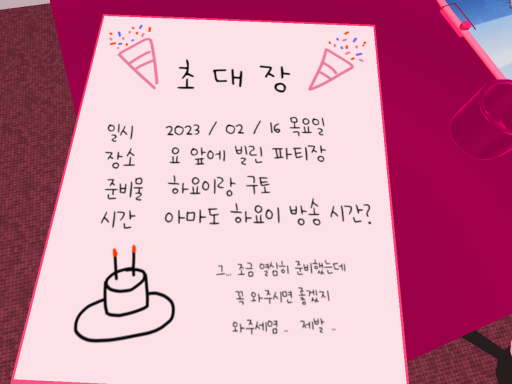 초대장
일시 2023 / 02 / 16 목요일
장소 요 앞에 빌린 파티장
준비물 하요이랑 구토
시간 아마도 하요이 방송 시간?
그... 조금 열심히 준비했는데
꼭 와주시면 좋겠지
와주세염 .. 제발 ..